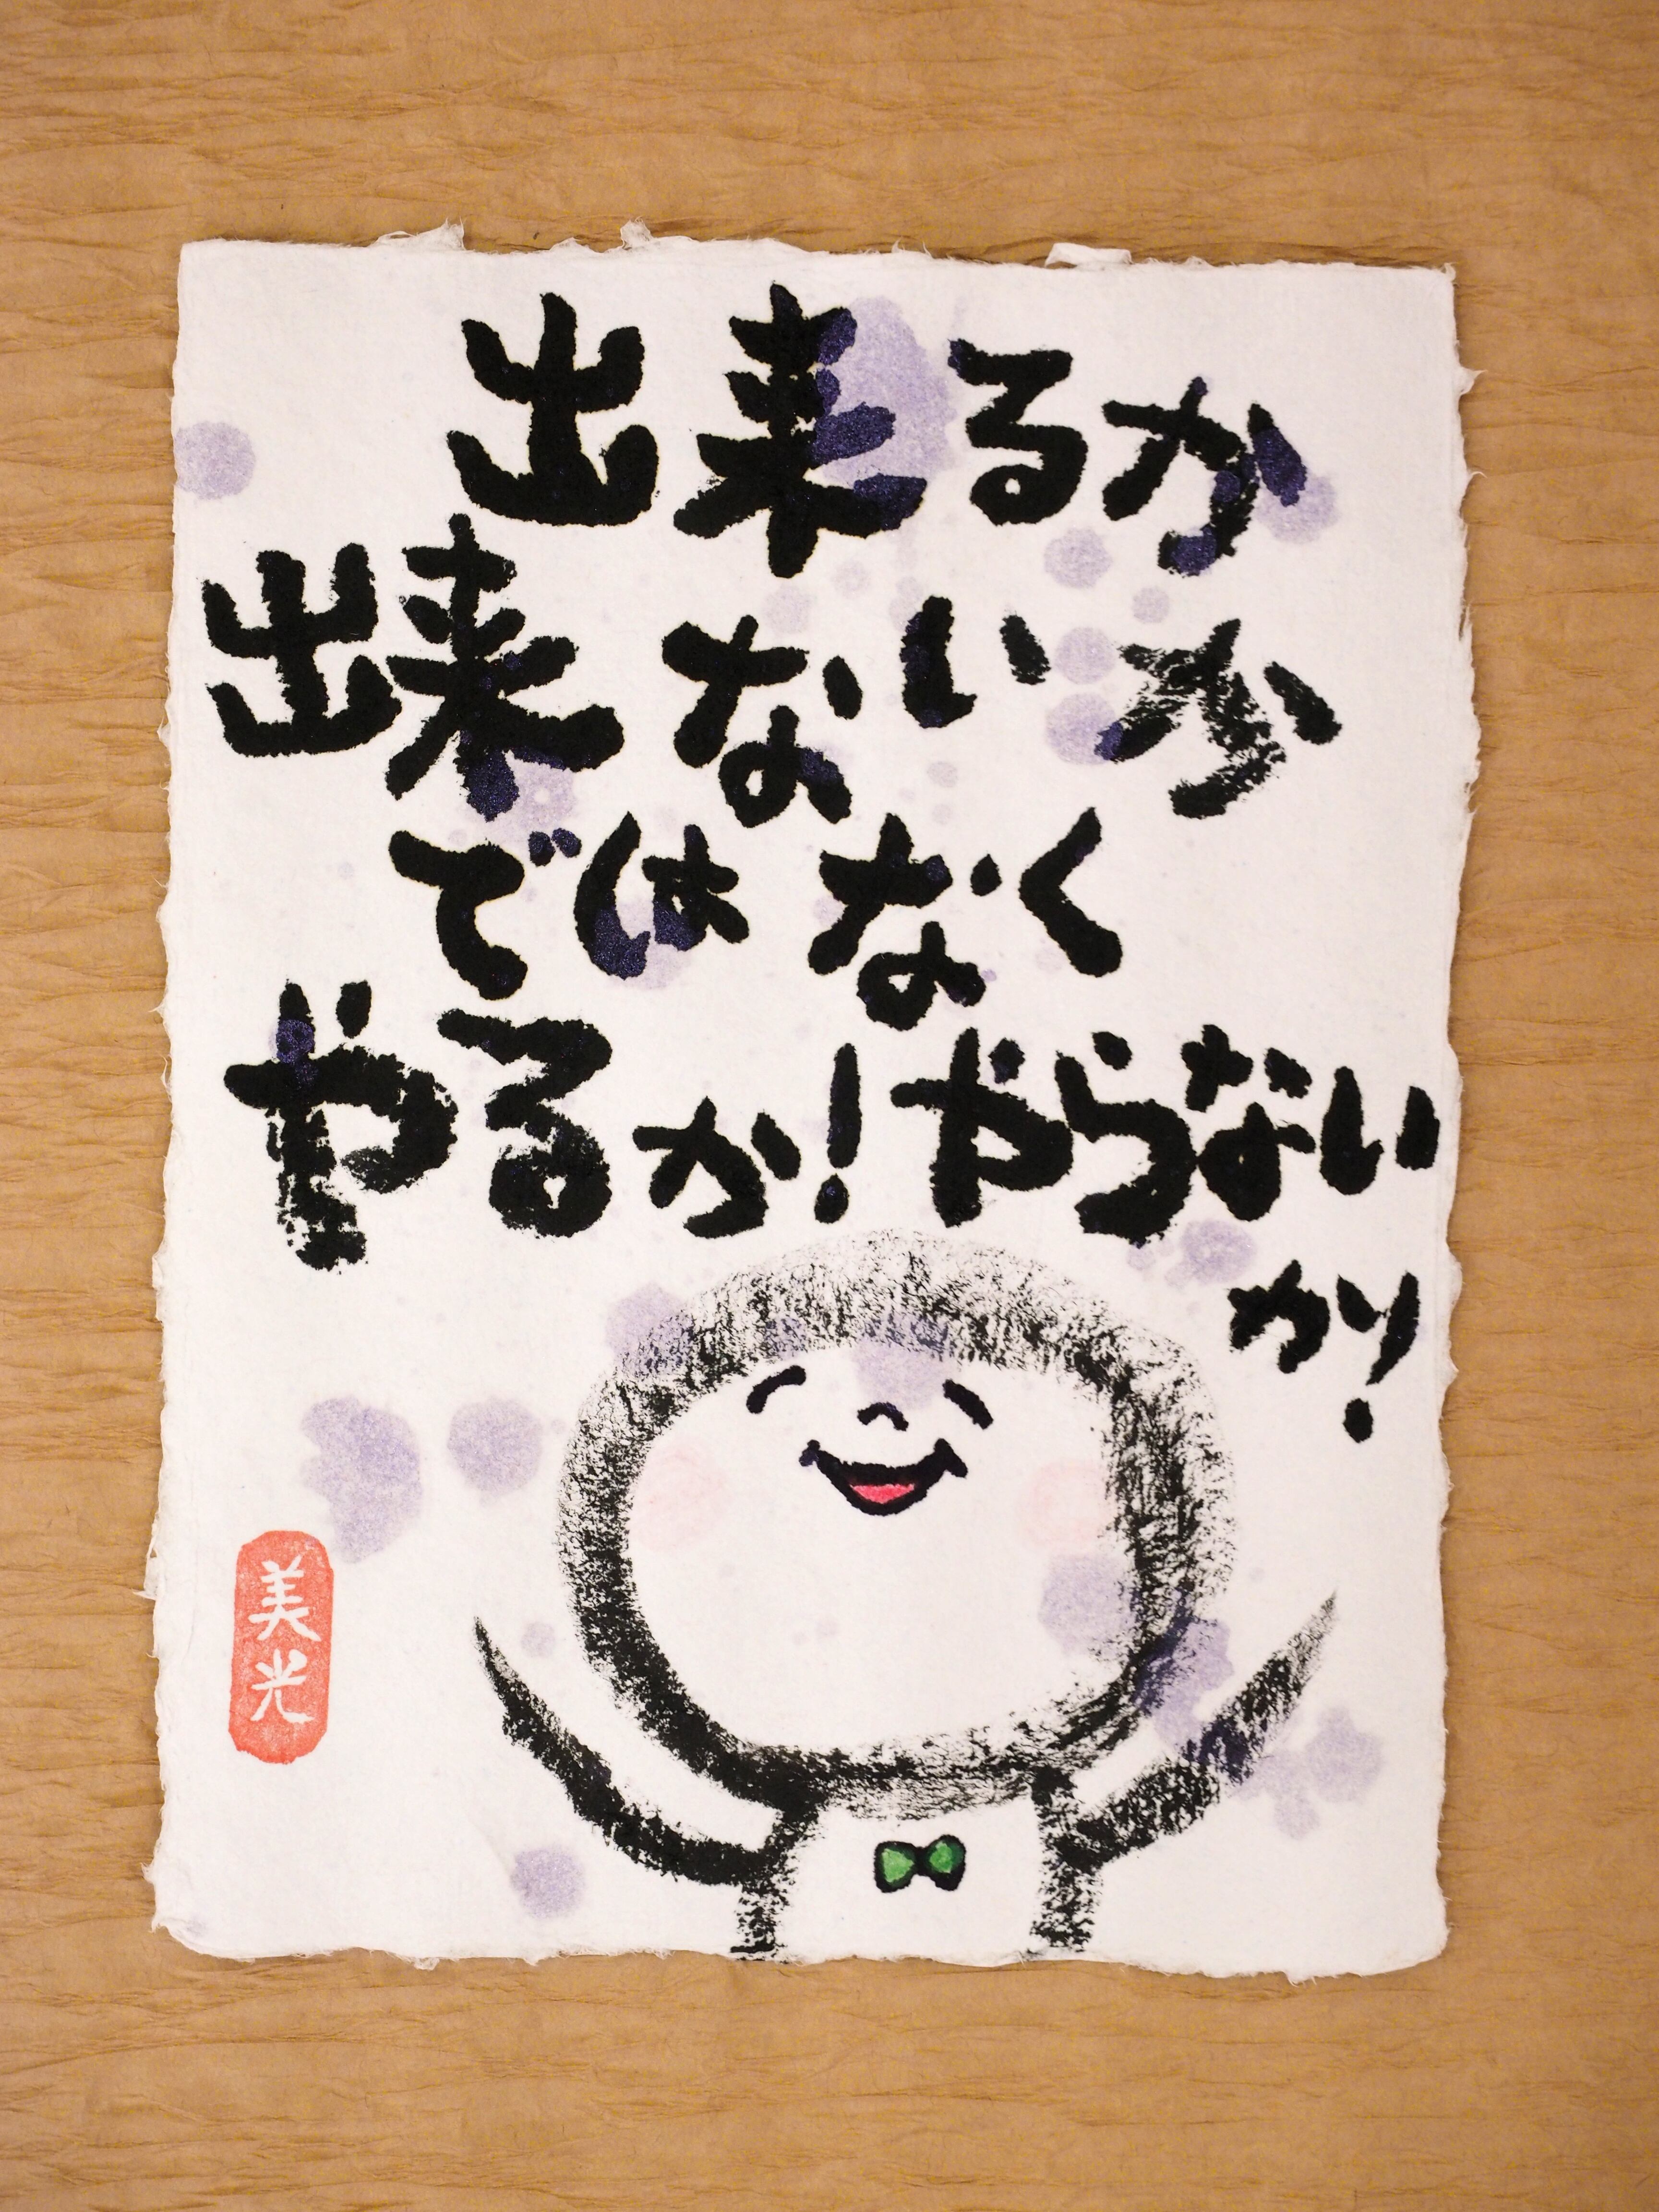 出来るか
出来ないか
ではなく
やるか!やらない
か!
美光